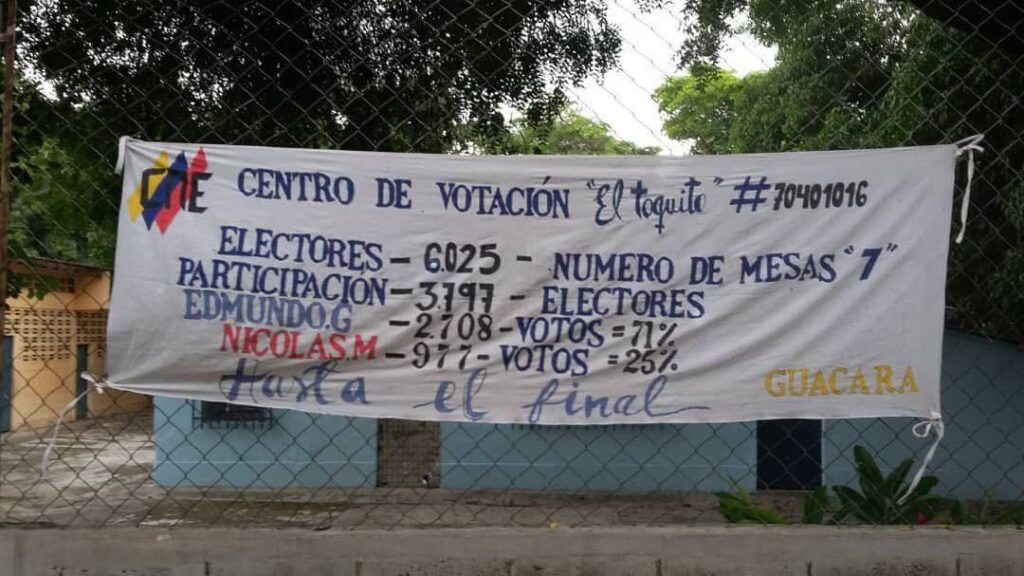 CNE CENTRO DE VOTACIÓN "El toquito" #70401016
ELECTORES - 6.025 - NUMERO DE MESAS "7"
PARTICIPACIÓN - 3.797 - ELECTORES
EDMUNDO.G - 2.708 - VOTOS = 71%
NICOLAS M - 977 - VOTOS = 25%
Hasta el final
GUACARA